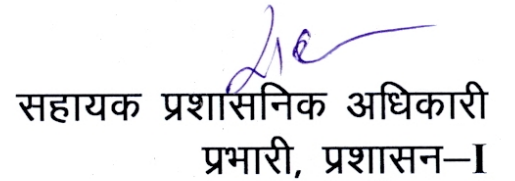 सहायक प्रशासनिक अधिकारी
प्रभारी, प्रशासन–I